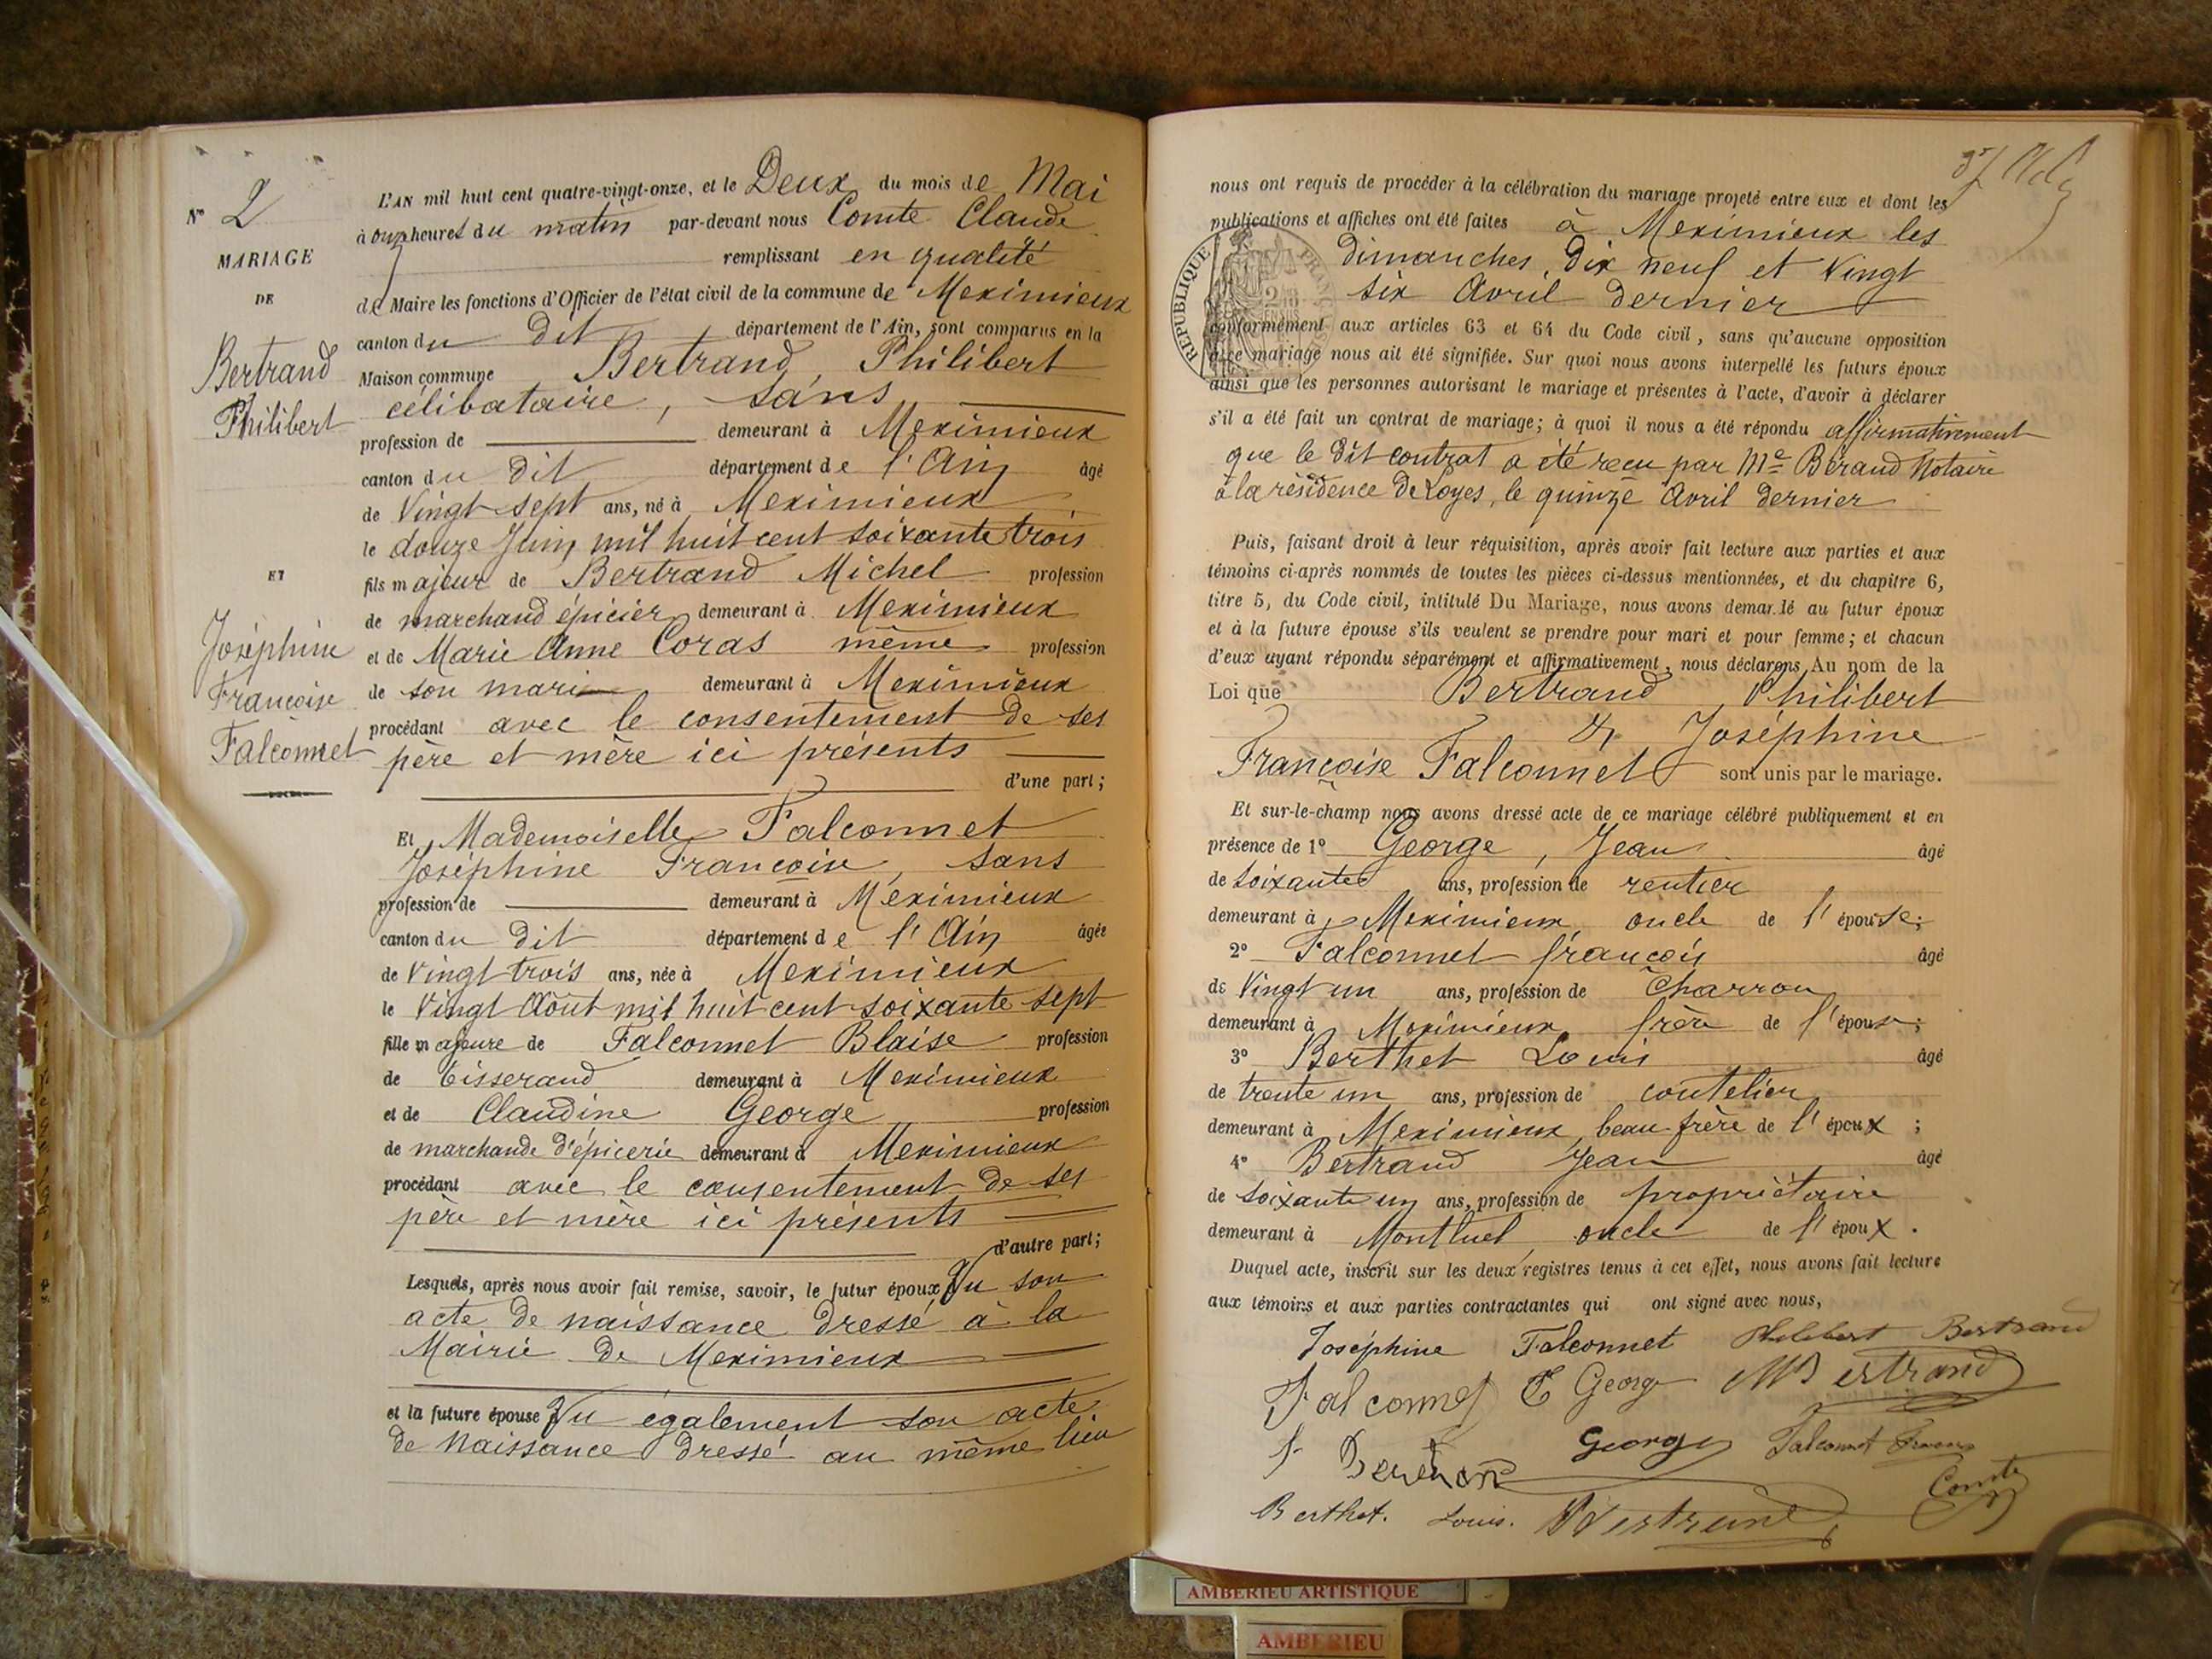 N° 2
MARIAGE
DE
Bertrand
Philibert
ET
Joséphine
Françoise
Falconnet
L'AN mil huit cent quatre-vingt-onze, et le Deux du mois de Mai
à onze heures du matin par-devant nous Comte Claude
remplissant en qualité
de Maire les fonctions d'Officier de l'état civil de la commune de Meximieux
canton du dit département de l'Ain, sont comparus en la
Maison commune Bertrand, Philibert
célibataire, sans
profession de demeurant à Meximieux
canton du dit département de l'Ain âgé
de Vingt sept ans, né à Meximieux
le douze Juin mil huit cent soixante trois
fils majeur de Bertrand Michel profession
de marchand épicier demeurant à Meximieux
et de Marie Anne Coras même profession
de son mari demeurant à Meximieux
procédant avec le consentement de ses
père et mère ici présents
d'une part;
Et Mademoiselle Falconnet
Joséphine Françoise, sans
profession de demeurant à Meximieux
canton du dit département de l'Ain âgée
de Vingt trois ans, née à Meximieux
le Vingt Août mil huit cent soixante sept
fille majeure de Falconnet Blaise profession
de tisserand demeurant à Meximieux
et de Claudine George profession
de marchande d'épicerie demeurant à Meximieux
procédant avec le consentement de ses
père et mère ici présents
d'autre part;
Lesquels, après nous avoir fait remise, savoir, le futur époux Vu son
acte de naissance dressé à la
Mairie de Meximieux
et la future épouse Vu également son acte
de Naissance dressé au même lieu
nous ont requis de procéder à la célébration du mariage projeté entre eux et dont les
publications et affiches ont été faites à Meximieux les
dimanches, dix neuf et Vingt
six Avril dernier
RÉPUBLIQUE FRANÇAISE
conformément aux articles 63 et 64 du Code civil, sans qu'aucune opposition
à ce mariage nous ait été signifiée. Sur quoi nous avons interpellé les futurs époux
ainsi que les personnes autorisant le mariage et présentes à l'acte, d'avoir à déclarer
s'il a été fait un contrat de mariage; à quoi il nous a été répondu affirmativement
que le dit contrat a été reçu par Me Béraud Notaire
à la résidence de Loyes, le quinze Avril dernier
Puis, faisant droit à leur réquisition, après avoir fait lecture aux parties et aux
témoins ci-après nommés de toutes les pièces ci-dessus mentionnées, et du chapitre 6,
titre 5, du Code civil, intitulé Du Mariage, nous avons demandé au futur époux
et à la future épouse s'ils veulent se prendre pour mari et pour femme; et chacun
d'eux ayant répondu séparément et affirmativement, nous déclarons, Au nom de la
Loi que Bertrand Philibert
& Joséphine
Françoise Falconnet sont unis par le mariage.
Et sur-le-champ nous avons dressé acte de ce mariage célébré publiquement et en
présence de 1° George, Jean âgé
de soixante ans, profession de rentier
demeurant à Meximieux, oncle de l'épouse;
2° Falconnet françois âgé
de Vingt un ans, profession de Charron
demeurant à Meximieux frère de l'épouse;
3° Berthet Louis âgé
de trente un ans, profession de coutelier
demeurant à Meximieux, beau frère de l'époux;
4° Bertrand Jean âgé
de soixante un ans, profession de propriétaire
demeurant à Montluel, oncle de l'époux.
Duquel acte, inscrit sur les deux registres tenus à cet effet, nous avons fait lecture
aux témoins et aux parties contractantes qui ont signé avec nous,
Joséphine Falconnet Philibert Bertrand
Falconnet C George M Bertrand
George Falconnet
Comte
Berthet. Louis. Bertrand
AMBERIEU ARTISTIQUE
AMBERIEU